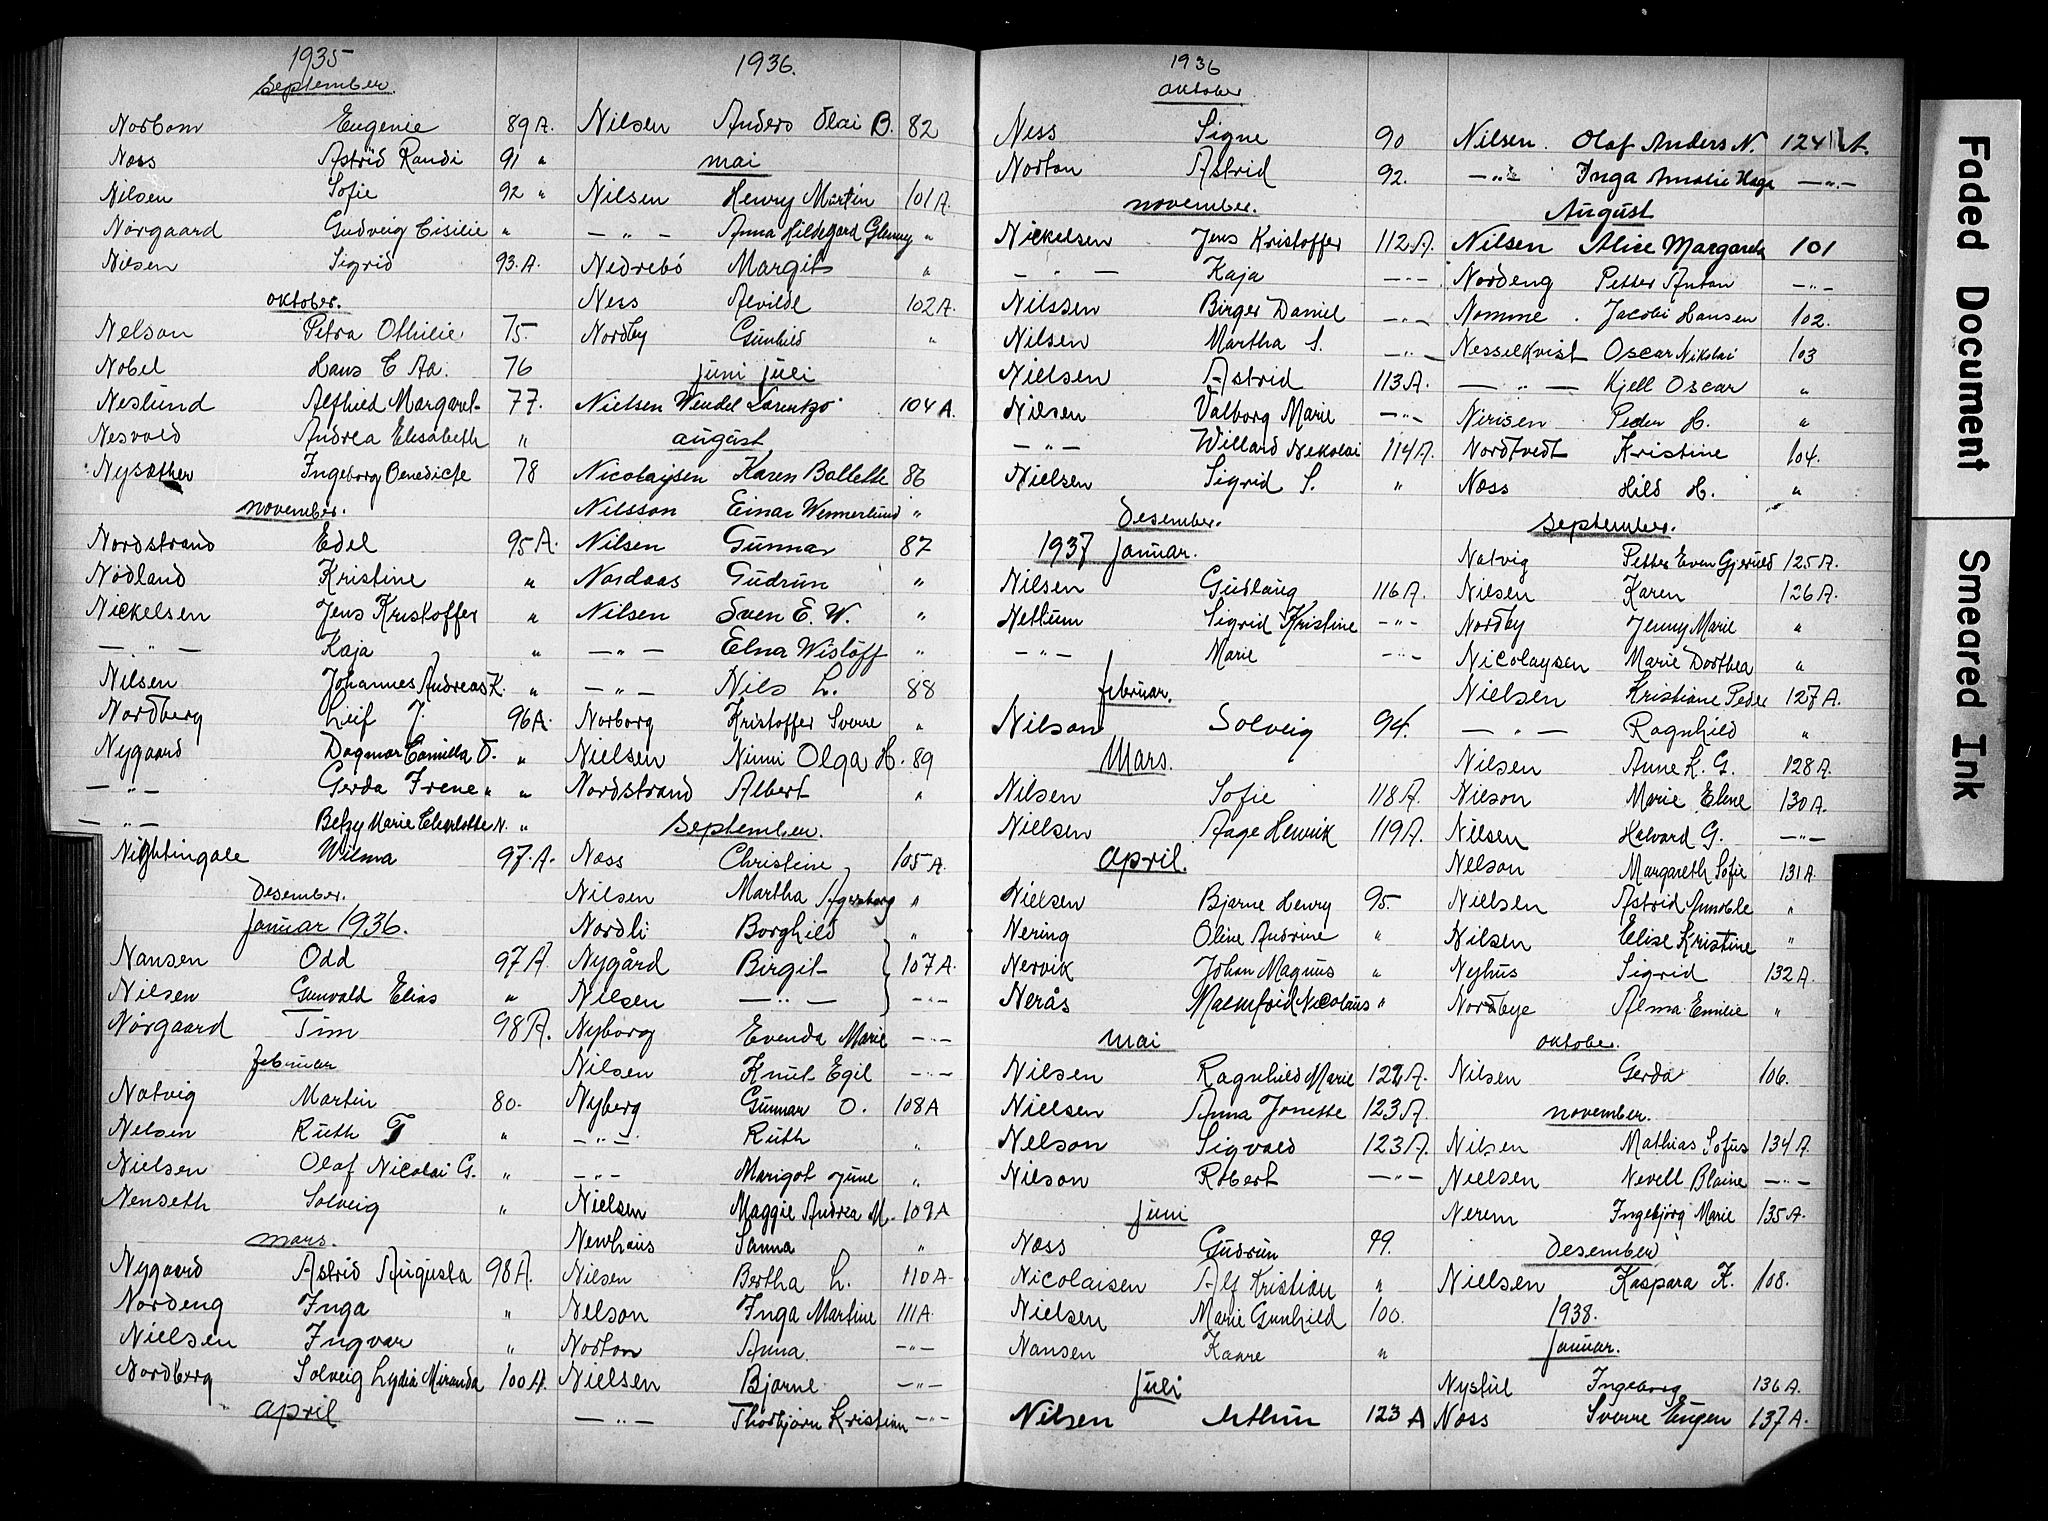 1935
September.
Norbom Eugenie 89 A.
Næss Astrid Randi 91 "
Nilsen Sofie 92 "
Nørgaard Gudveig Cisilie "
Nilsen Sigrid 93. A.
oktober.
Nelson Petra Othilie 75.
Nobel Hans C Aa. 76
Neslund Alfhild Margaret 77.
Nesvold Andrea Elisabeth "
Nysæther Ingeborg Benedicte 78
november.
Nordstrand Edel 95 A.
Nødland Kristine "
Nickelsen Jens Kristoffer "
— " — Kaja "
Nilsen Johannes Andreas K. "
Nordberg Leif J. 96 A.
Nygaard Dagmar Camilla O. "
— " — Gerda Irene " "
— " — Betzy Marie Charlotte N. "
Nightingale Wilma 97. A.
Desember.
Januar 1936.
Nansen Odd 97 A.
Nilsen Gunvald Elias "
Nørgaard Tim 98 A.
februar
Natvig Martin 80.
Nelsen Ruth G "
Nielsen Olaf Nicolai G. "
Nenseth Solveig "
mars.
Nygaard Astrid Augusta 98 A.
Nordeng Inga "
Nielsen Ingvar "
Nordberg Solveig Lydia Miranda 100 A.
april
1936.
Nilsen Anders Olai B. 82
mai
Nilsen Henry Martin 101 A.
— " — Anna Hildegard Glenny "
Nedrebö Margit "
Ness Alvilde 102 A.
Nordby Gunhild "
juni juli
Nielsen Wendel Lorentzo 104 A.
august
Nicolaysen Karen Bollette 86
Nilsson Einar Wennerlund "
Nilsen Gunnar 87
Nordaas Gudrun "
Nilsen Sven E. W. "
— " — Elna Wislöff "
— " — Nils L. 88
Norborg Kristoffer Sverre "
Nielsen Nimi Olga H. 89
Nordstrand Albert "
September.
Næss Christine 105 A.
Nilsen Martha Agersborg "
Nordli Borghild "
Nygård Birgit 107 A.
Nilsen — " — — " —
Nyborg Evenda Marie — " —
Nilsen Knut Egil — " —
Nyberg Gunnar O. 108 A
— " — Ruth "
— " — Marigot June "
Nielsen Maggie Andrea M. 109 A
Newhaus Sanna "
Nilsen Bertha L. 110 A.
Nelson Inga Martine 111 A
Norton Anna — " —
Nielsen Bjarne — " —
— " — Thorbjørn Kristian — " —
1936
oktober
Ness Signe 90
Norton Astrid 92.
november.
Nickelsen Jens Kristoffer 112 A.
— " — Kaja — " —
Nilssen Birger Daniel — " —
Nilsen Martha S. — " —
Nielsen Astrid 113 A.
Nilsen Valborg Marie — " —
— " — Willard Nekolai 114 A.
Nielsen Sigrid S. "
Desember.
1937 Januar.
Nilsen Gudlaug 116 A.
Nettum Sigrid Kristine — " —
— " — Marie — " —
februar.
Nilson Solveig 94.
Mars.
Nilsen Sofie 118 A.
Nielsen Aage Henrik 119 A.
april.
Nielsen Bjarne Henry 95.
Nering Oline Andrine "
Nervik Johan Magnus "
Nerås Malmfrid Nicolaus "
mai
Nilsen Ragnhild Marie 122 A.
Nielsen Anna Jonette 123 A.
Nelson Sigvald 123 A.
Nilson Robert — " —
juni
Næss Gudrun 99.
Nicolaisen Alf Kristian "
Nielsen Marie Gunhild 100.
Nansen Kaare "
juli
Nilsen Arthur 123 A
Nilsen. Olaf Anders N. 124 A.
— " — Inga Amalie Haga — " —
August
Nilsen Alice Margareth 101
Nordeng Petter Anton — " —
Nomme. Jacobi Hansen 102.
Nesselkvist Oscar Nikolai 103
— " — Kjell Oscar "
Nirisen Peder H. "
Nordtvedt Kristine 104.
Næss Hild H. "
September.
Natvig Petter Even Gjeruld 125 A.
Nilsen Karen 126 A.
Nordby Jenny Marie "
Nicolaysen Marie Dorthea "
Nielsen Kristiane Peder 127 A.
— " — Ragnhild "
Nilsen Anne L. G. 128 A.
Nilson Marie Eline 130 A.
Nilsen Halvard G. — " —
Nelson Margareth Sofie 131 A
Nielsen Astrid Annoble "
Nilsen Elise Kristine "
Nyhus Sigrid 132 A.
Nordbye Alma Emilie "
oktober.
Nilsen Gerda 106.
november.
Nilsen Mathias Sofus 134 A.
Nielsen Nevell Blaine — " —
Nerem Ingebjørg Marie 135 A.
Desember
Nielsen Kaspara K. 108.
1938.
Januar.
Nystul Ingeborg 136 A.
Næss Sverre Eugen 137 A.
Faded Document
Smeared Ink